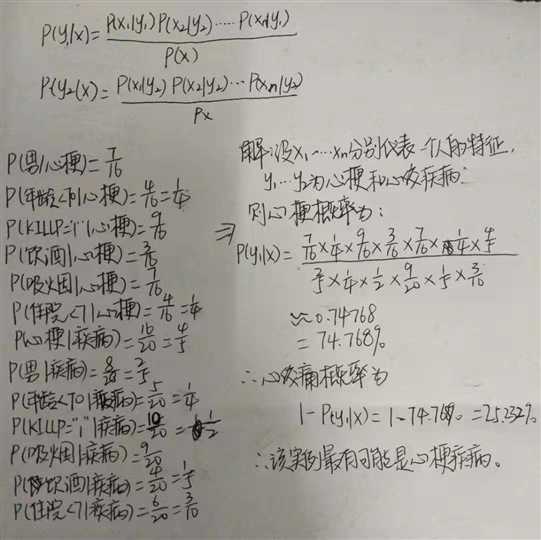 P(y₁|x)= P(x₁|y₁)P(x₂|y₂)·····P(xₙ|y₁) / P(x)
P(y₂(x)= P(x₁|y₂)P(x₂|y₂)···P(xₙ|y₂) / Px
P(男|心梗)=7/16
P(年龄<70|心梗)=4/16=1/4
P(KILLP="1"|心梗)=9/16
P(饮酒|心梗)=3/16
P(吸烟|心梗)=7/16
P(住院<7|心梗)=4/16=1/4
P(心梗|疾病)=16/20=4/5
P(男|疾病)=8/20=2/5
P(年龄<70|疾病)=5/20=1/4
P(KILLP="1"|疾病)=10/20=1/2
P(吸烟|疾病)=9/20
P(饮酒|疾病)=4/20=1/5
P(住院<7|疾病)=6/20=3/10
解:设x₁····xₙ分别代表一个人的特征,
y₁···y₂为心梗和心绞疾病.
⇒ 则心梗概率为:
P(y₁|x)= 7/16×1/4×9/16×3/16×7/16×1/4×4/5 / 2/5×1/4×1/2×9/20×1/5×3/10
≈0.74768
=74.768%
∴心绞痛概率为
1-P(y₁|x)=1-74.768%=25.232%
∴该实例最有可能是心梗疾病。